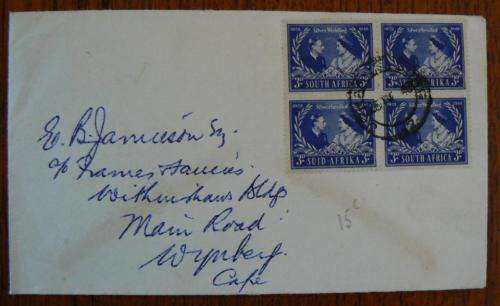 1923 Silver Wedding 1948
3d SOUTH AFRICA 3d
Silwerbruilof
3d SUID-AFRIKA 3d
Silwerbruilof
3d SUID-AFRIKA 3d
Silver Wedding
3d SOUTH AFRICA 3d
E. B. Jamieson Esq.
c/o James
Bldgs
Main Road
Wynberg.
Cape
15c